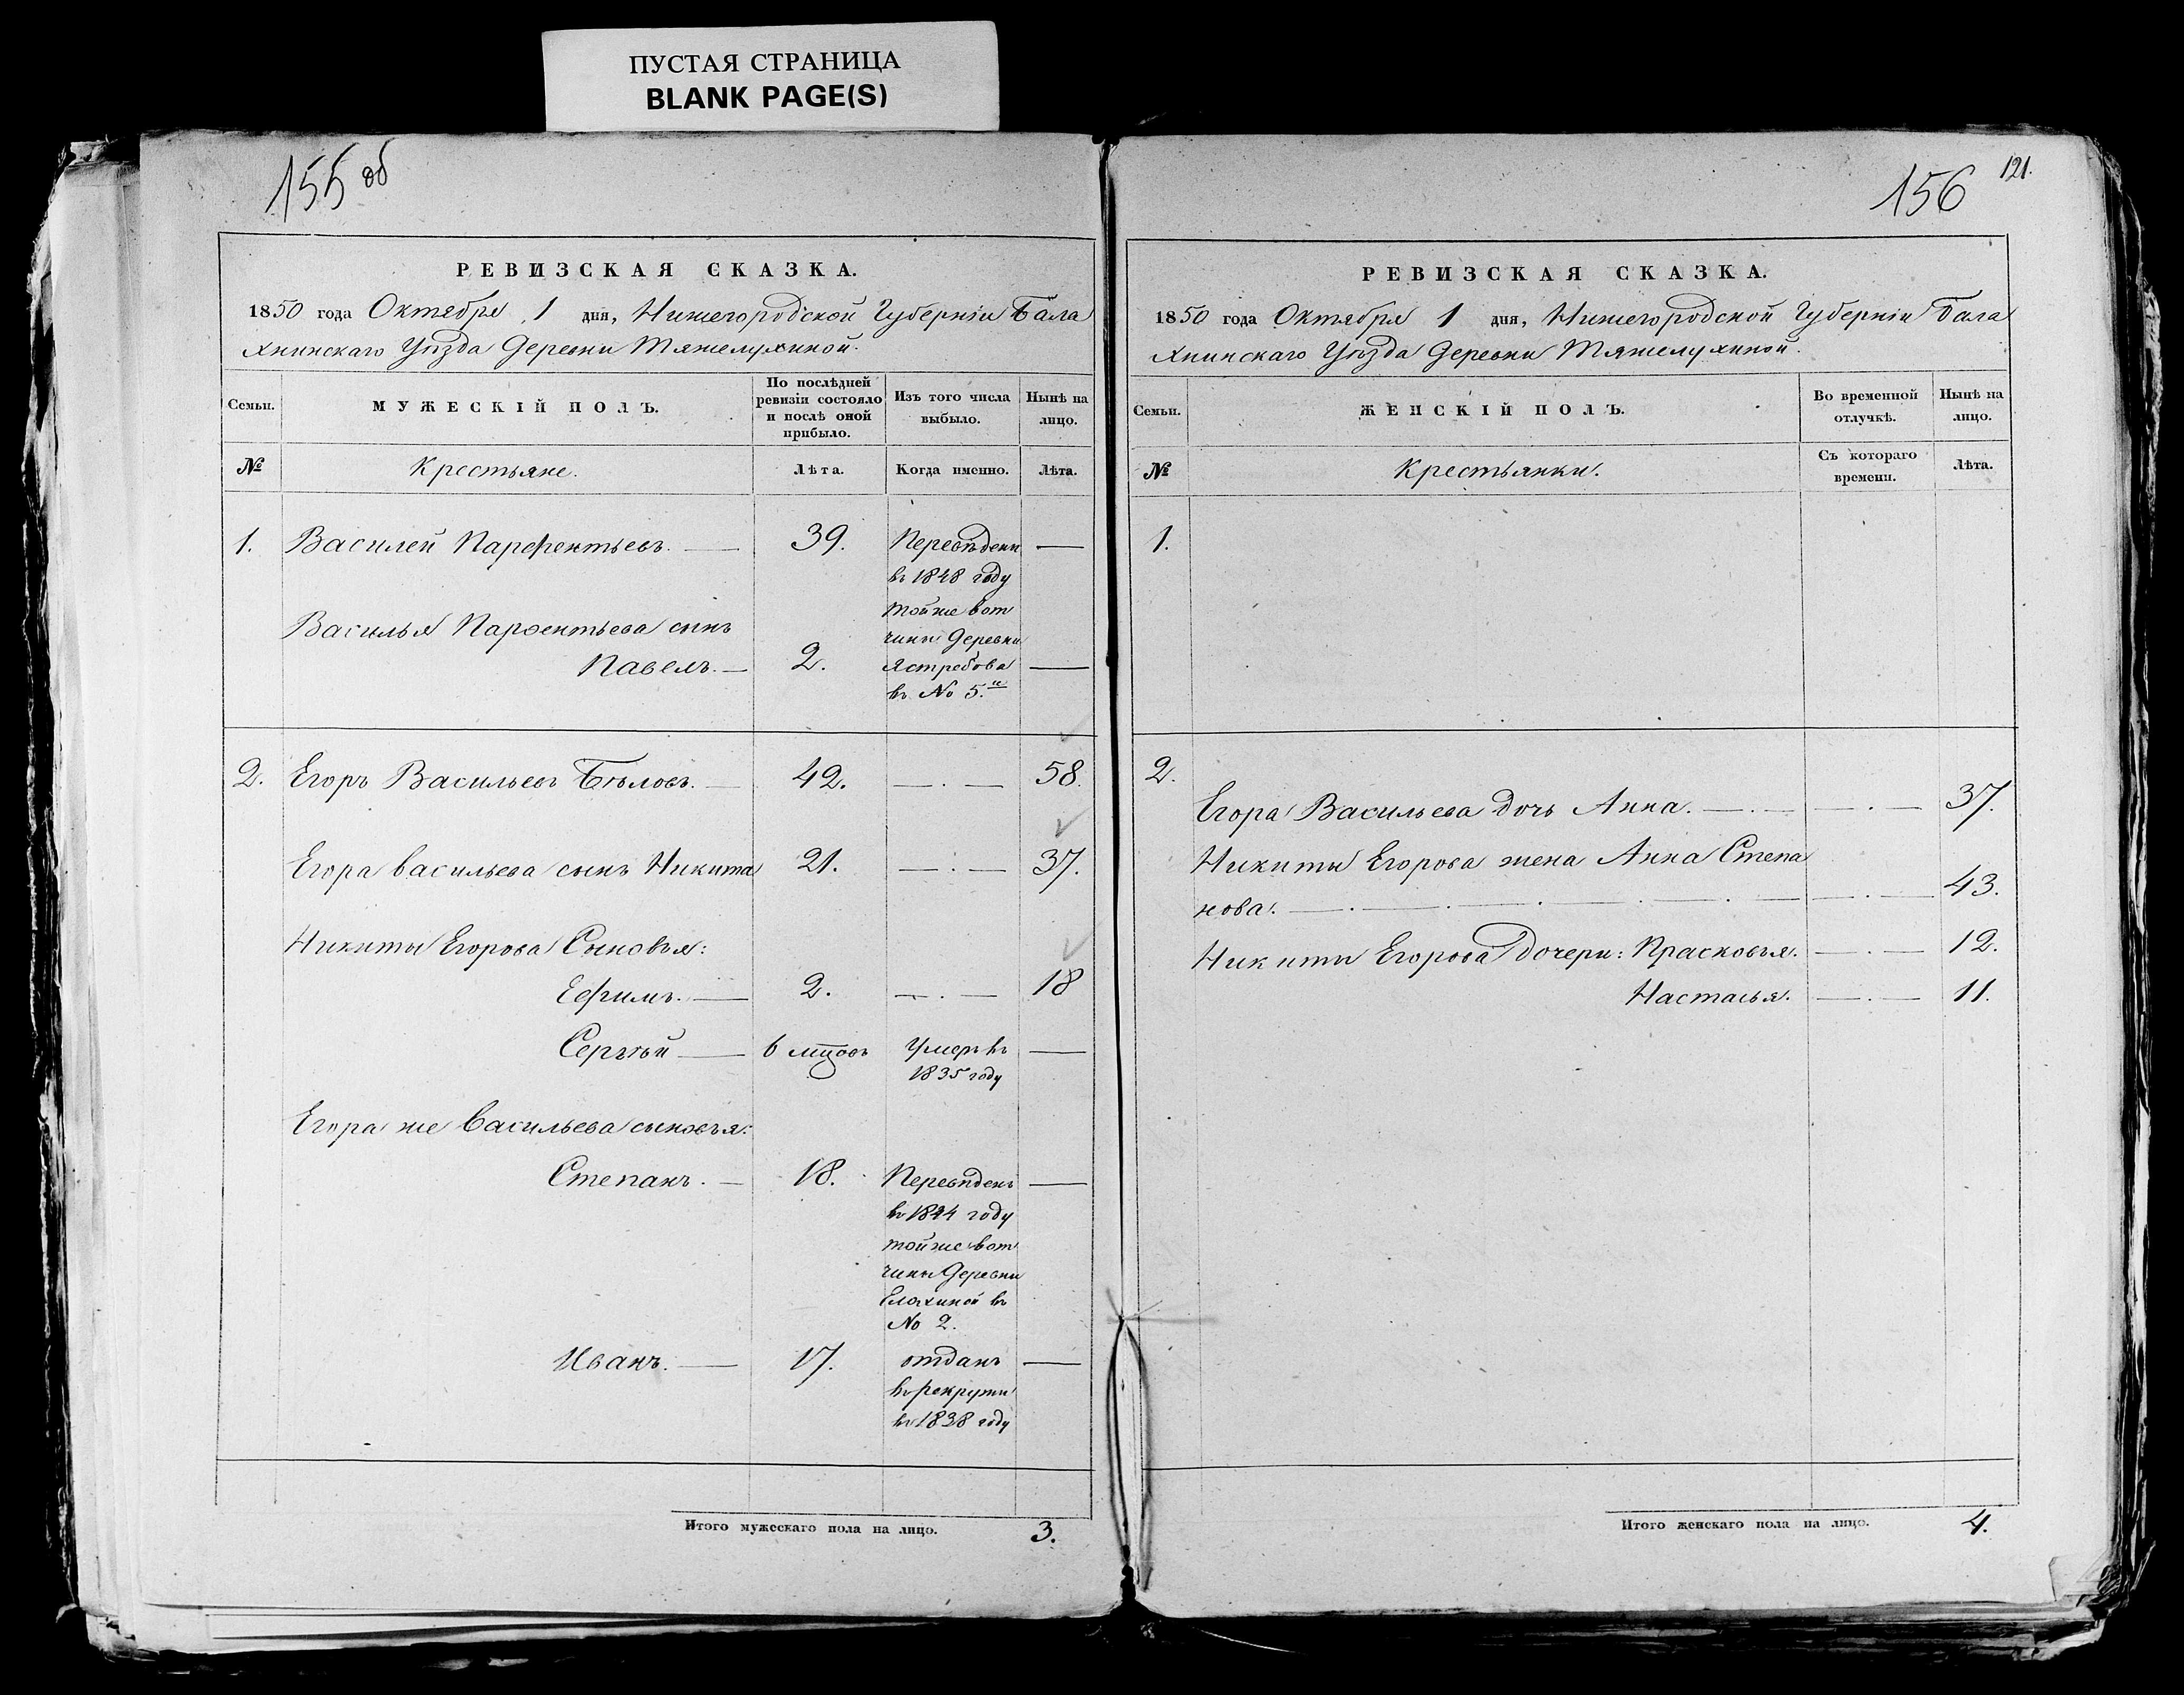 ПУСТАЯ СТРАНИЦА
BLANK PAGE(S)
155 об
РЕВИЗСКАЯ СКАЗКА.
1850 года Октября 1 дня, Нижегородской Губерніи Бала
хнинскаго Уѣзда Деревни Тяжелухиной.
Семьи.
МУЖЕСКІЙ ПОЛЪ.
По послѣдней
ревизіи состояло
и послѣ оной
прибыло.
Изъ того числа
выбыло.
Нынѣ на
лицо.
№
Крестьяне.
Лѣта.
Когда именно.
Лѣта.
1. Василей Парфентьевъ. — 39. Переведены —
въ 1848 году
тойже вот
Василья Парѳентьева сынъ
чины Деревни
Павелъ. — 2. Ястребова —
въ No 5.й
2. Егоръ Васильевъ Бѣловъ. — 42. — . — 58.
Егора Васильева сынъ Никита 21. — . — 37.
Никиты Егорова Сыновья:
Ефимъ. — 2. — . — 18
Сергѣй — 6 мцовъ Умеръ въ —
1835 году
Егора же Васильева сыновья:
Степанъ. — 18. Переведенъ —
въ 1844 году
тойже вот
чины Деревни
Елахиной въ
No 2.
Иванъ. — 17. отданъ —
въ рекруты
въ 1838 году
Итого мужескаго пола на лицо. 3.
156
121.
РЕВИЗСКАЯ СКАЗКА.
1850 года Октября 1 дня, Нижегородской Губерніи Бала
хнинскаго Уѣзда Деревни Тяжелухиной.
Семьи.
ЖЕНСКІЙ ПОЛЪ.
Во временной
отлучкѣ.
Нынѣ на
лицо.
№
Крестьянки.
Съ котораго
времени.
Лѣта.
1.
2.
Егора Васильева дочь Анна. — . — — . — 37.
Никиты Егорова жена Анна Степа
нова. — . — . — . — . — — . — 43.
Никиты Егорова Дочери: Прасковья. — . — 12.
Настасья. — . — 11.
Итого женскаго пола на лицо. 4.